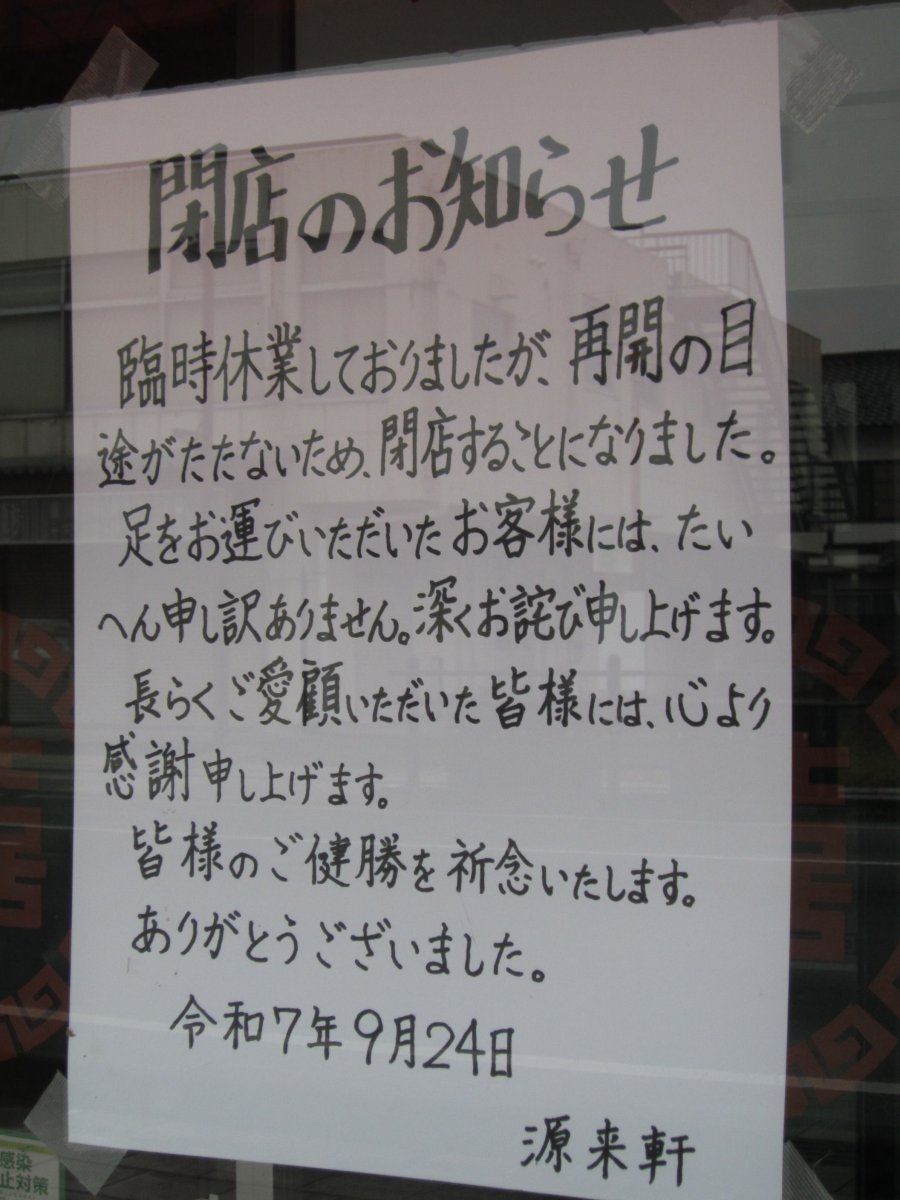 閉店のお知らせ
臨時休業しておりましたが、再開の目
途がたたないため、閉店することになりました。
足をお運びいただいたお客様には、たい
へん申し訳ありません。深くお詫び申し上げます。
長らくご愛顧いただいた皆様には、心より
感謝申し上げます。
皆様のご健勝を祈念いたします。
ありがとうございました。
令和7年9月24日
源来軒
感染
止対策